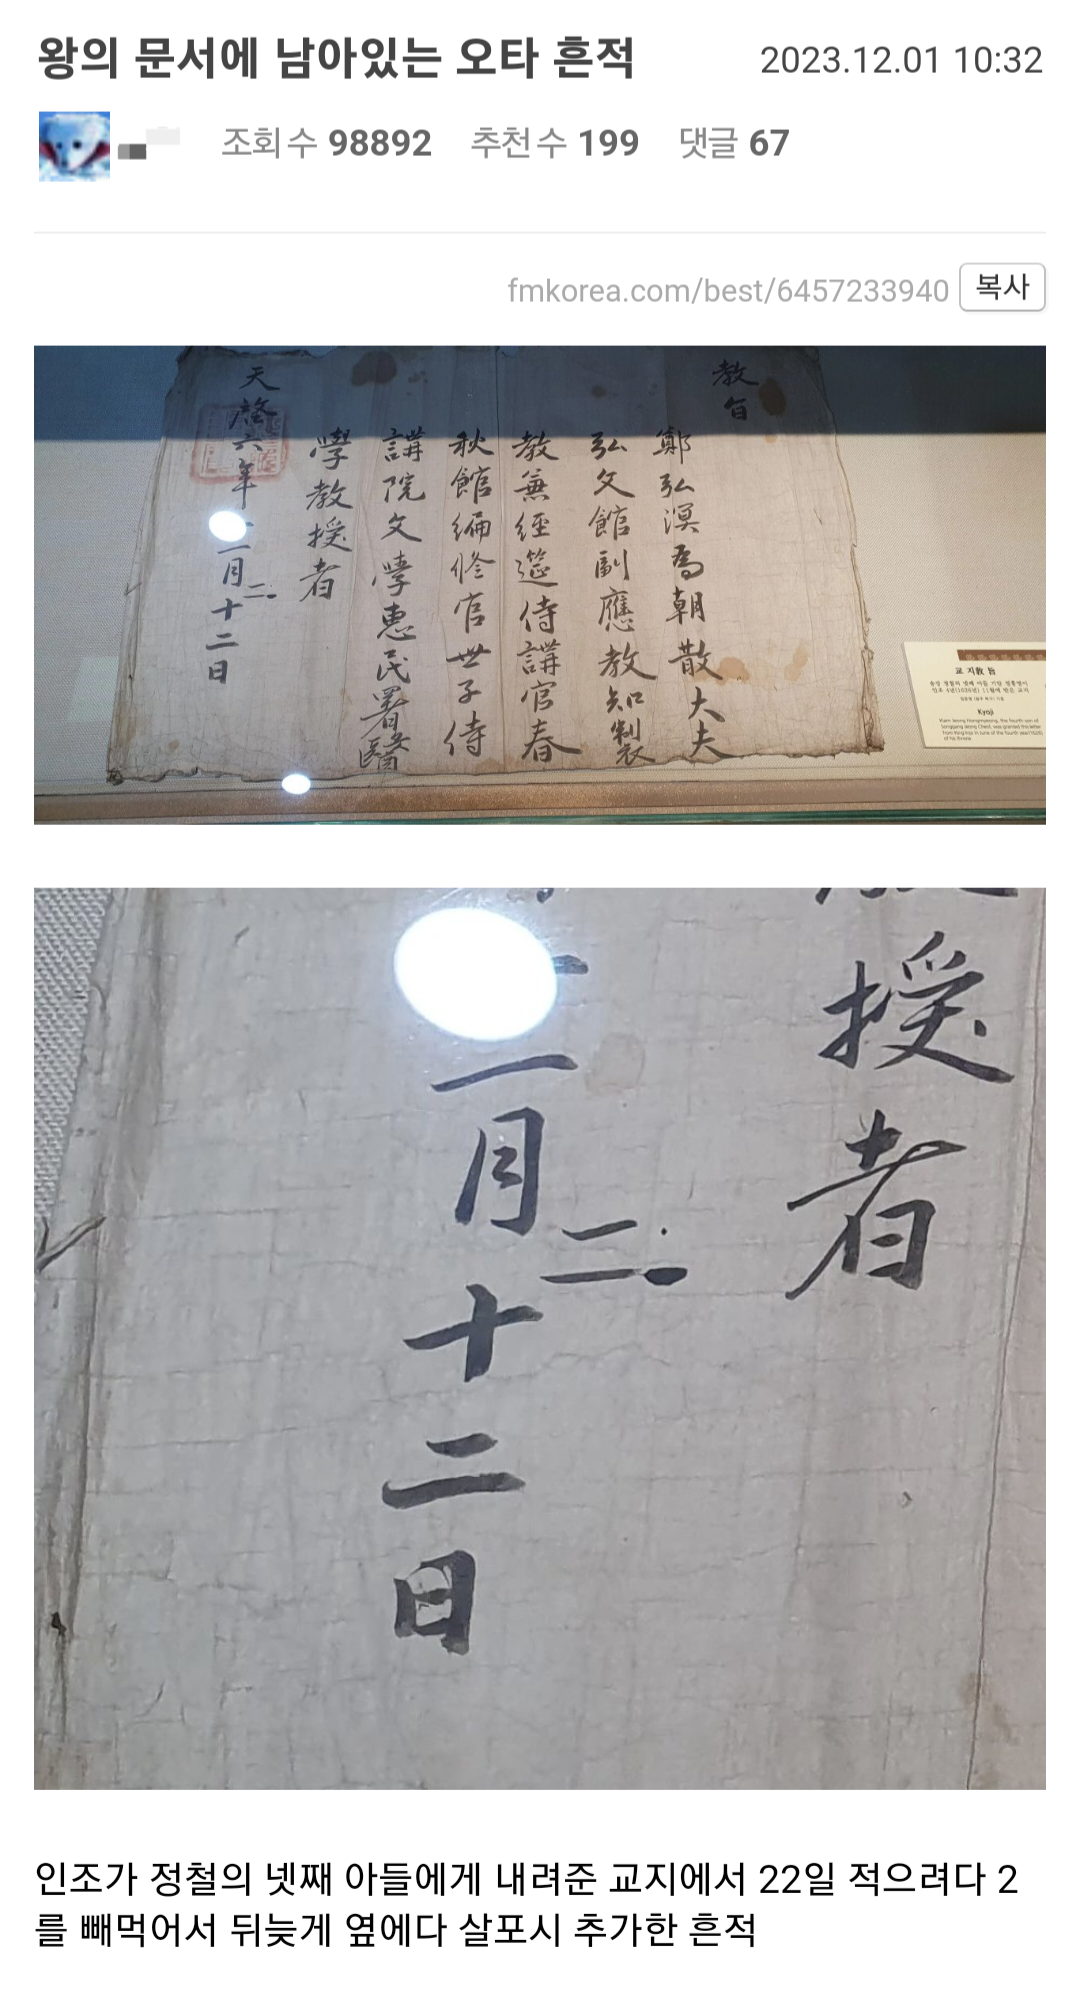 왕의 문서에 남아있는 오타 흔적
2023.12.01 10:32
조회 수 98892 추천 수 199 댓글 67
fmkorea.com/best/6457233940 복사
教旨
鄭弘溟爲朝散大夫
弘文館副應教知製
教兼經筵侍講官春
秋館編修官世子侍
講院文學惠民署醫
學教授者
天啓六年
一月二十二日
教旨
Kyoji
授
者
一月二十二日
인조가 정철의 넷째 아들에게 내려준 교지에서 22일 적으려다 2
를 빼먹어서 뒤늦게 옆에다 살포시 추가한 흔적